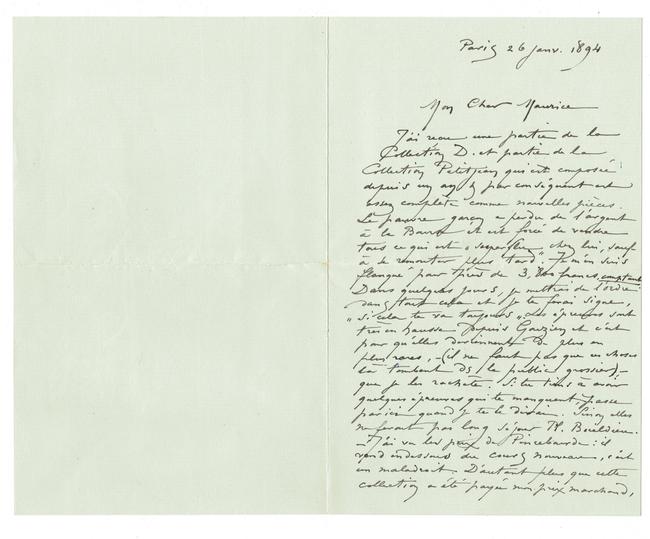 Paris 26 janv. 1894
Mon Cher Maurice
J'ai reçu une partie de la
Collection D. et partie de la
Collection Petitjean qui est composée
depuis un an & par conséquent est
assez complète comme nouvelles pièces.
Le pauvre garçon a perdu de l'argent
à la Bourse et est forcé de vendre
tout ce qui est "superflu" chez lui, sauf
à se remonter plus tard. Je m'en suis
flanqué pour près de 3,800 francs comptant.
Dans quelques jours, je mettrai de l'ordre
dans tout cela et je te ferai signe,
"si cela te va toujours". Les épreuves sont
très en hausse depuis et c'est
pour qu'elles deviennent de plus en
plus rares, - (il ne faut pas que ces choses
là tombent ds le public grossier) -
que je les rachète. Si tu tiens à avoir
quelques épreuves qui te manquent, passe
par ici quand je te le dirai. Sinon elles
ne feront pas long séjour R. Boieldieu.
- J'ai vu les prix de : il
vend au dessous du cours nouveau, c'est
un maladroit. D'autant plus que cette
collection a été payée mon prix marchand,